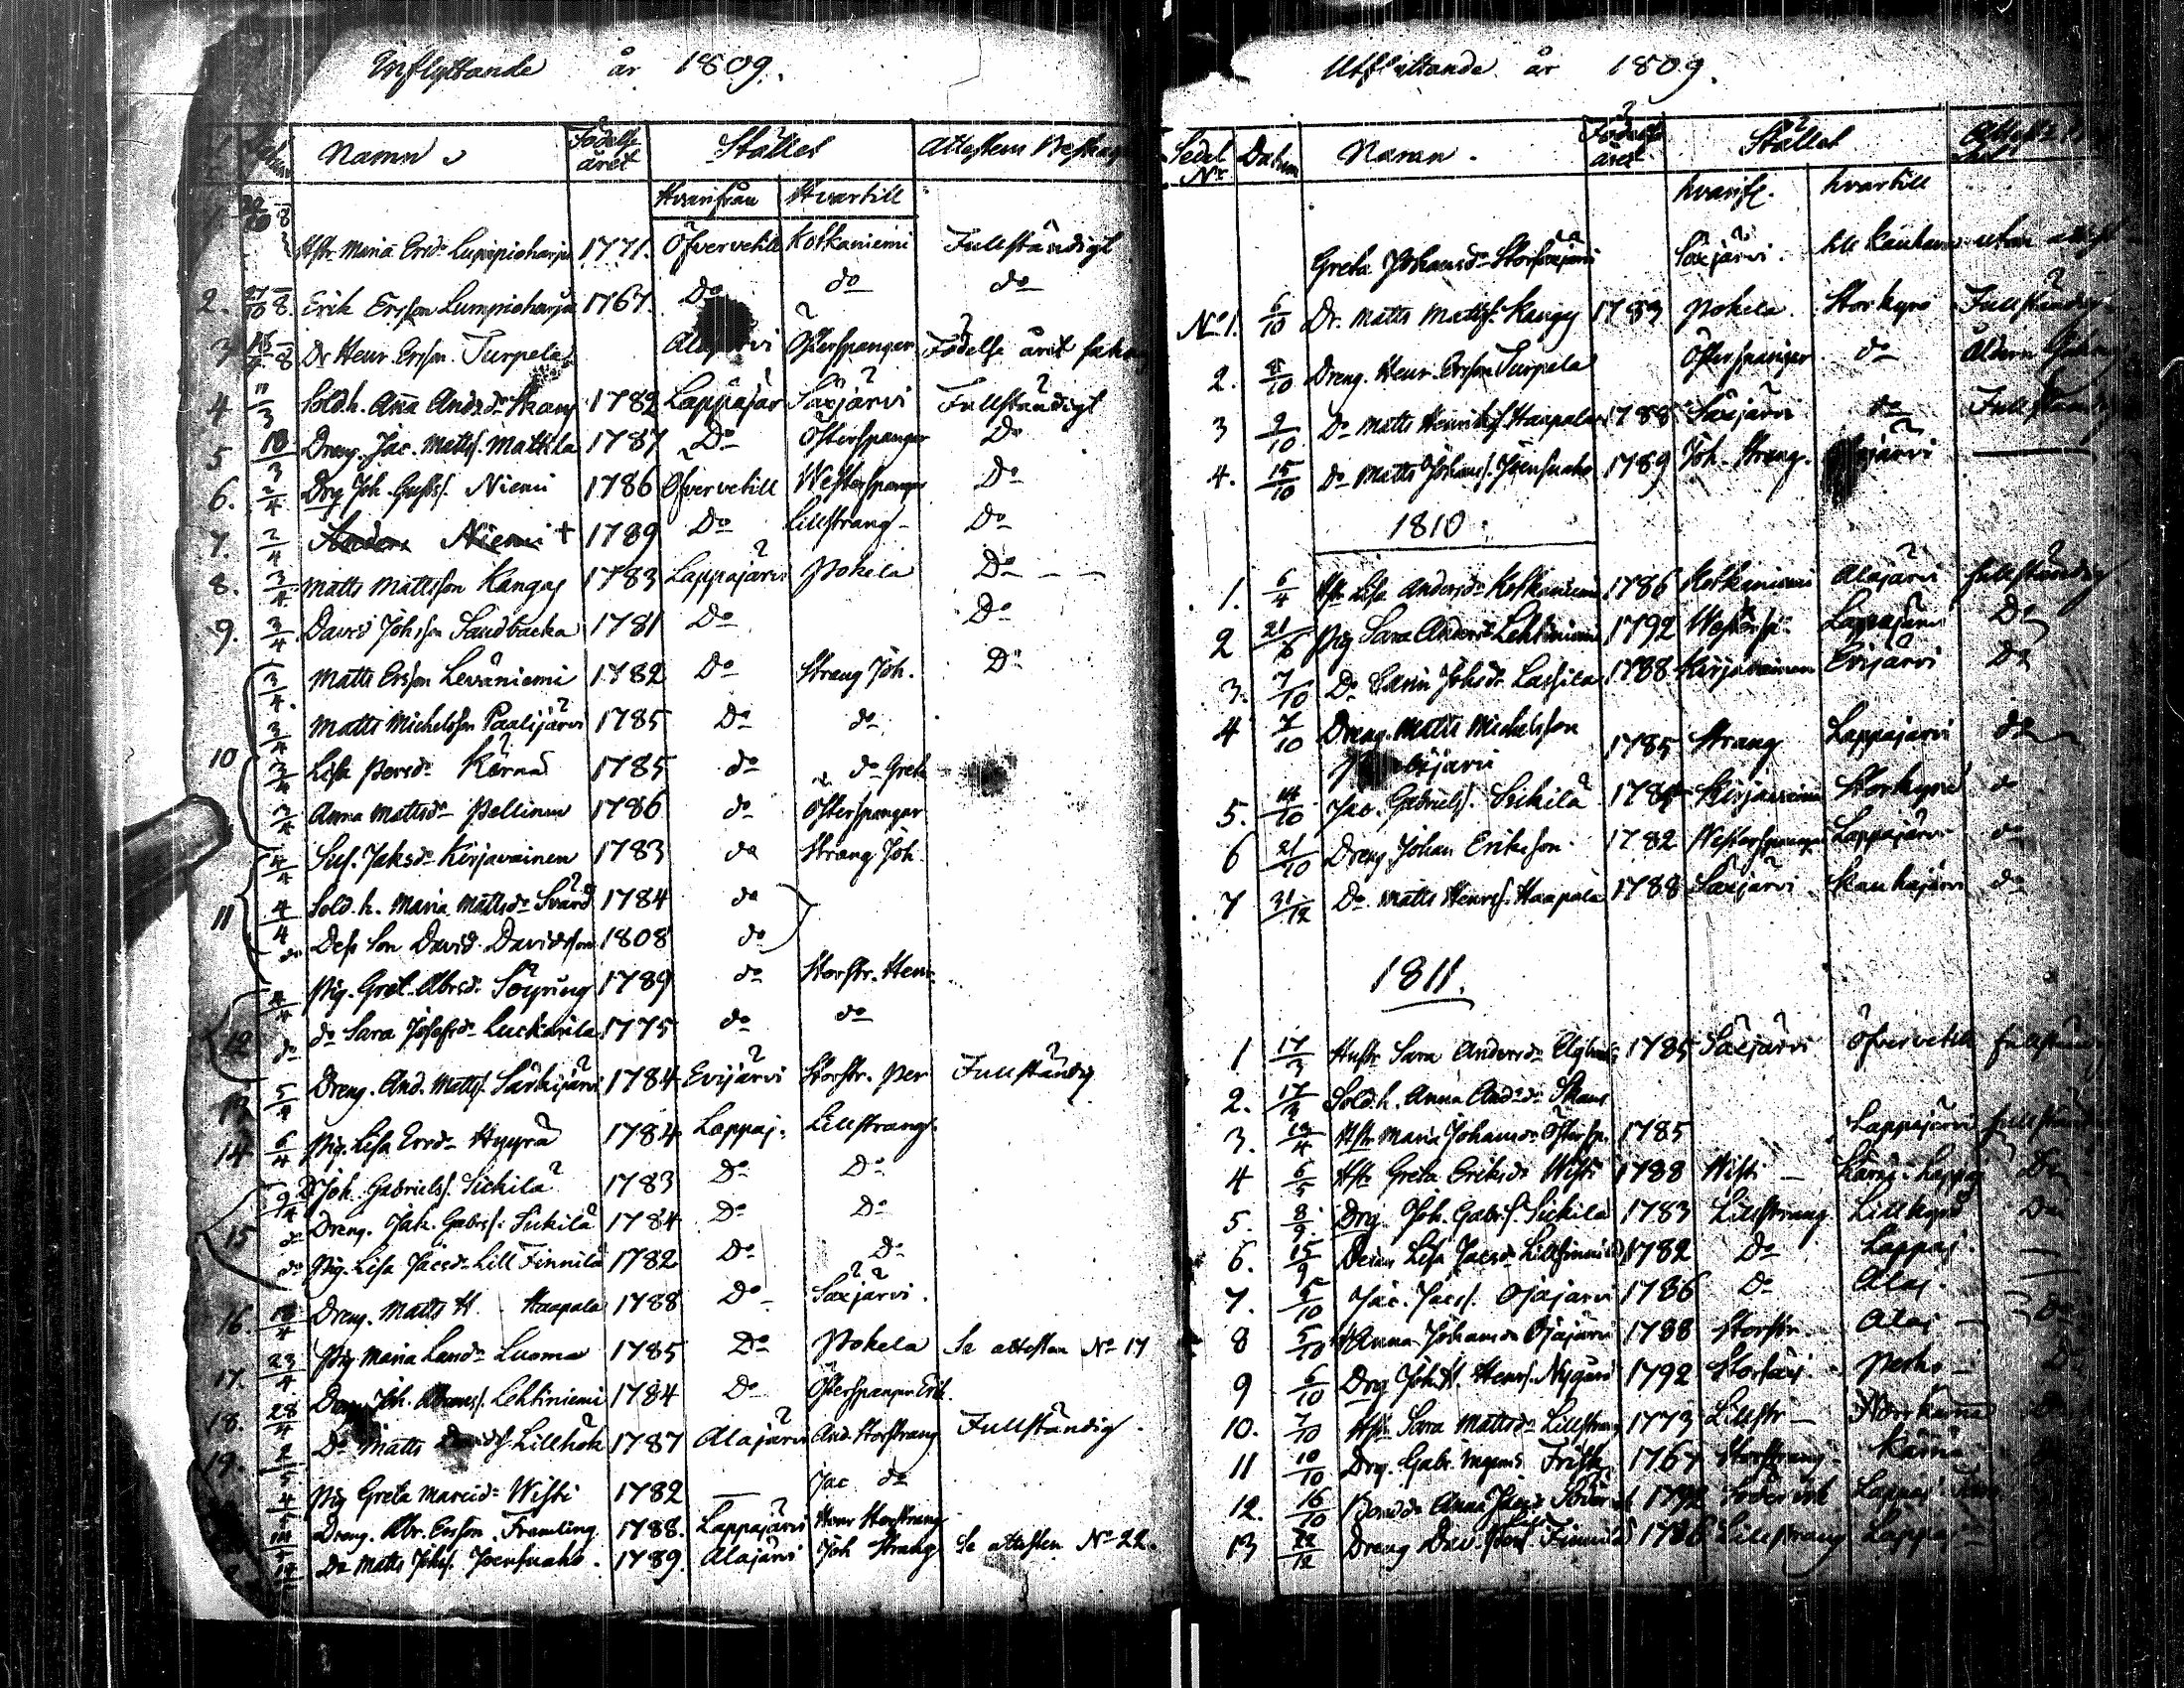 Inflyttande år 1809.
Namn Födelse året Stället Attestens Beskaf
Hvarifrån Hvartill
1. Hstr. Maria Ersdr 1771. Öfvervetill Kotkaniemi Fullständigt
2. 27/10 8. Erik Ersson Lumpioharju 1767. Do do do
3 Dr Henr. Ersson Turpela Österspanger Födelse året
4 11/3 Sold.h. Anna Andsdr Skans 1782 Lappajär Säxjärvi Fullständigt
5 18/3 Dreng. Jac. Mattss. Mattila 1787 Do Österspanger Do
6. 2/4 Drg Joh. Gustss. Niemi 1786 Öfvervetill Westerspanger Do
7. 2/4 Anders Niemi + 1789 Do Lillstrang Do
8. 3/4 Matts Mattsson Kangas 1783 Lappajärvi Pokela Do
9. 3/4 David Johsson Sandbacka 1781 Do Do
3/4. Matts Ersson Leväniemi 1782 Do Strang Joh. Do
3/4 Matts Michelsson Paalijärvi 1785 Do do
10 3/4 Lisa Persdr Kärnä 1785 do do Greta
3/4 Anna Mattsdr Pellinen 1786 do Österspanger
4/4 Sus. Jaksdr Kirjavainen 1783 do Strang Joh.
11 4/4 Sold.h. Maria Mattsdr Svärd 1784 do
do Dess Son David Davidsson 1808 do
4/4 Pig. Gret. Abrsdr Söyring 1789 do Storstr. Henr.
12 do do Sara Josefsdr Luckarila 1775 do do
13 5/4 Dreng. And. Mattss. Särkijärvi 1784 Evijärvi Storstr. Per Fullständig
14 6/4 Pig. Lisa Ersdr Hyyrä 1784 Lappaj. Lillstrang.
9/4 Joh. Gabrielss. Sickilä 1783 Do Do
15 do Dreng. Jak. Gabrss. Sickilä 1784 Do Do
do Pig. Lisa Jacsdr Lill Finnilä 1782 Do Do
16. 18/4 Dreng. Matts H. Haapala 1788 Do Säxjärvi.
17. 23/4 Pig Maria Luoma 1785 Do Pokela Se attesten No 17
18. 28/4 Dreng Joh. Lehtiniemi 1784 Do Österspanger Erik.
19. Do Matts Davids. Lillhök 1787 Alajärvi And. Storstrang Fullständig.
Pig Greta Marcidr Wisti 1782 — Jac do
Dreng. Abr. Ersson Framling 1788. Lappajärvi Henr Storstrang
Do Matts Johss. Joensuaho. 1789. Alajärvi Joh Strang Se attesten No 22.
Utflyttande år 1809.
Sedel No Datum Namn. Födelse året Stället
hvarifr. hvartill
Greta Johansdr Storsäxjärvi Säxjärvi. till utan
No 1. 6/10 Dr. Matts Mattss. Kangas 1783 Pokela. Storkyro Fullständig
2. 8/10 Dreng. Henr. Ersson Turpela Österspanger do Åldern
3 9/10 Do Matts Henrikss. Haapala 1788 Säxjärvi do Fullständig
4. 15/10 Do Matts Johanss. Joensuaho 1789 Joh. Strang. —
1810
1. 6/4 Hstr Lisa Andersdr Kotkaniemi 1786 Kotkaniemi Alajärvi fullständig
2 21/6 Pig Sara Andersdr Lehtiniemi 1792 Lappajärvi Do
3. 7/10 Do Carin Johsdr Lassila 1788 Kirjavainen Evijärvi Do
4 7/10 Dreng. Matts Michelsson
1785 Strang Lappajärvi do
5. 14/10 Jac. Gabrielss. Sickilä 1784 Kirjavainen Storkyro do
6 21/10 Dreng Johan Eriksson 1782 Westerspanger Lappajärvi do
7 31/12 Do Matts Henrss. Haapala 1788 Säxjärvi Kauhajärvi do
1811.
1 17/3 Hustr Sara Andersdr 1785 Säxjärvi Öfvervetill fullständ
2. 17/3 Sold.h. Anna Andsdr Skans
3. 12/4 Hstr Maria Johansdr Östersp. 1785 Lappajärvi fullstän
4 6/5 Hstr Greta Eriksdr Wisti 1788 Wisti — Do
5. 8/9 Drg. Joh. Gabrs. Sickilä 1783 Lillstrang Lillkyro Do
6. 15/9 Lisa Jacsdr Lillfinnilä 1782 Do Lappaj. —
7. 5/10 Jac. Jacss. Ojajärvi 1786 Do Alaj. —
8 5/10 Anna Johansdr Ojajärvi 1788 Storstr. Alaj — Do
9 6/10 Drg Joh. H. Henrss. Nygård 1792 Storsäxj. Perho — Do
10. 7/10 Hstr Sara Mattsdr Lillstrang 1773 Lillstr — Do
11 10/10 Drg. Gabr. Frisk 1767 Storstrang Kärnä
12. 16/10 Anna 1792 Lappaj
13 22/12 Dreng Finnilä 1786 Lillstrang Lappaj —